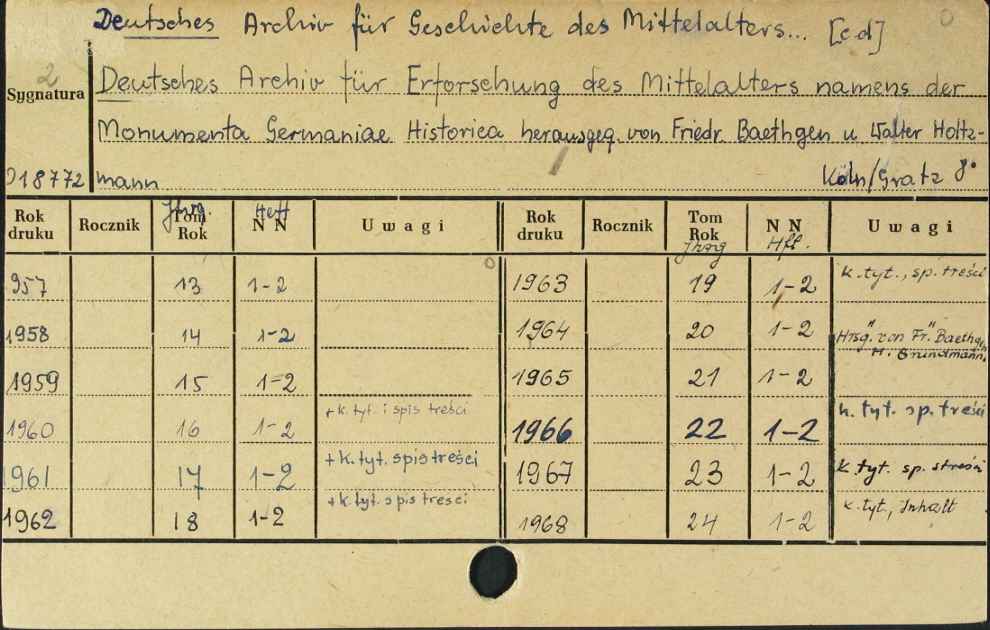 Deutsches Archiv für Geschichte des Mittelalters... [c d]
2
Sygnatura
Deutsches Archiv für Erforschung des Mittelalters namens der
Monumenta Germaniae Historica herausgeg. von Friedr. Baethgen u Walter Holtz-
018772 mann Köln/Gratz 8°
Rok druku Rocznik Tom Rok Jhrg. N N Heft Uwagi Rok druku Rocznik Tom Rok Jhrg N N Hft. Uwagi
957 13 1-2 1963 19 1-2 k. tyt., sp. treści
1958 14 1-2 1964 20 1-2 Hrsg. von Fr. Baethgen, H. Grundmann,
1959 15 1-2 1965 21 1-2
1960 16 1-2 +k. tyt. i spis treści 1966 22 1-2 k. tyt. sp. treści
1961 17 1-2 +k. tyt. spis treści 1967 23 1-2 k. tyt. sp. streści
1962 18 1-2 +k. tyt. spis treści 1968 24 1-2 k. tyt., Inhalt